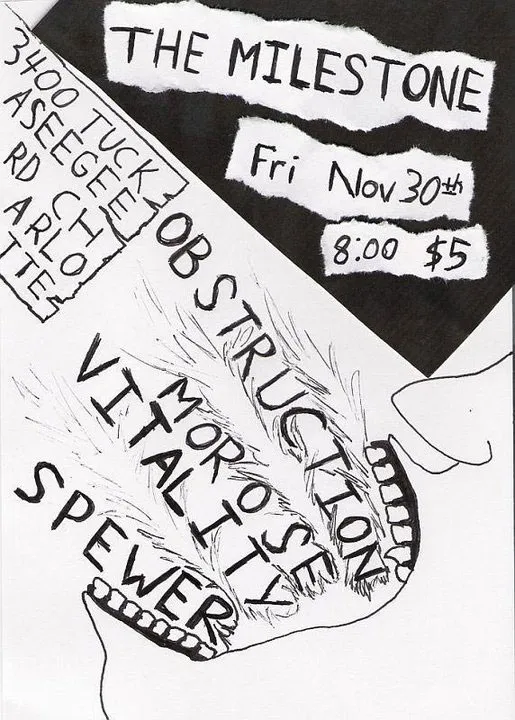 THE MILESTONE
Fri Nov 30th
8:00 $5
3400 TUCK
ASEEGEE
RD CH
ARLO
TTE
OBSTRUCTION
MOROSE
VITALITY
SPEWER